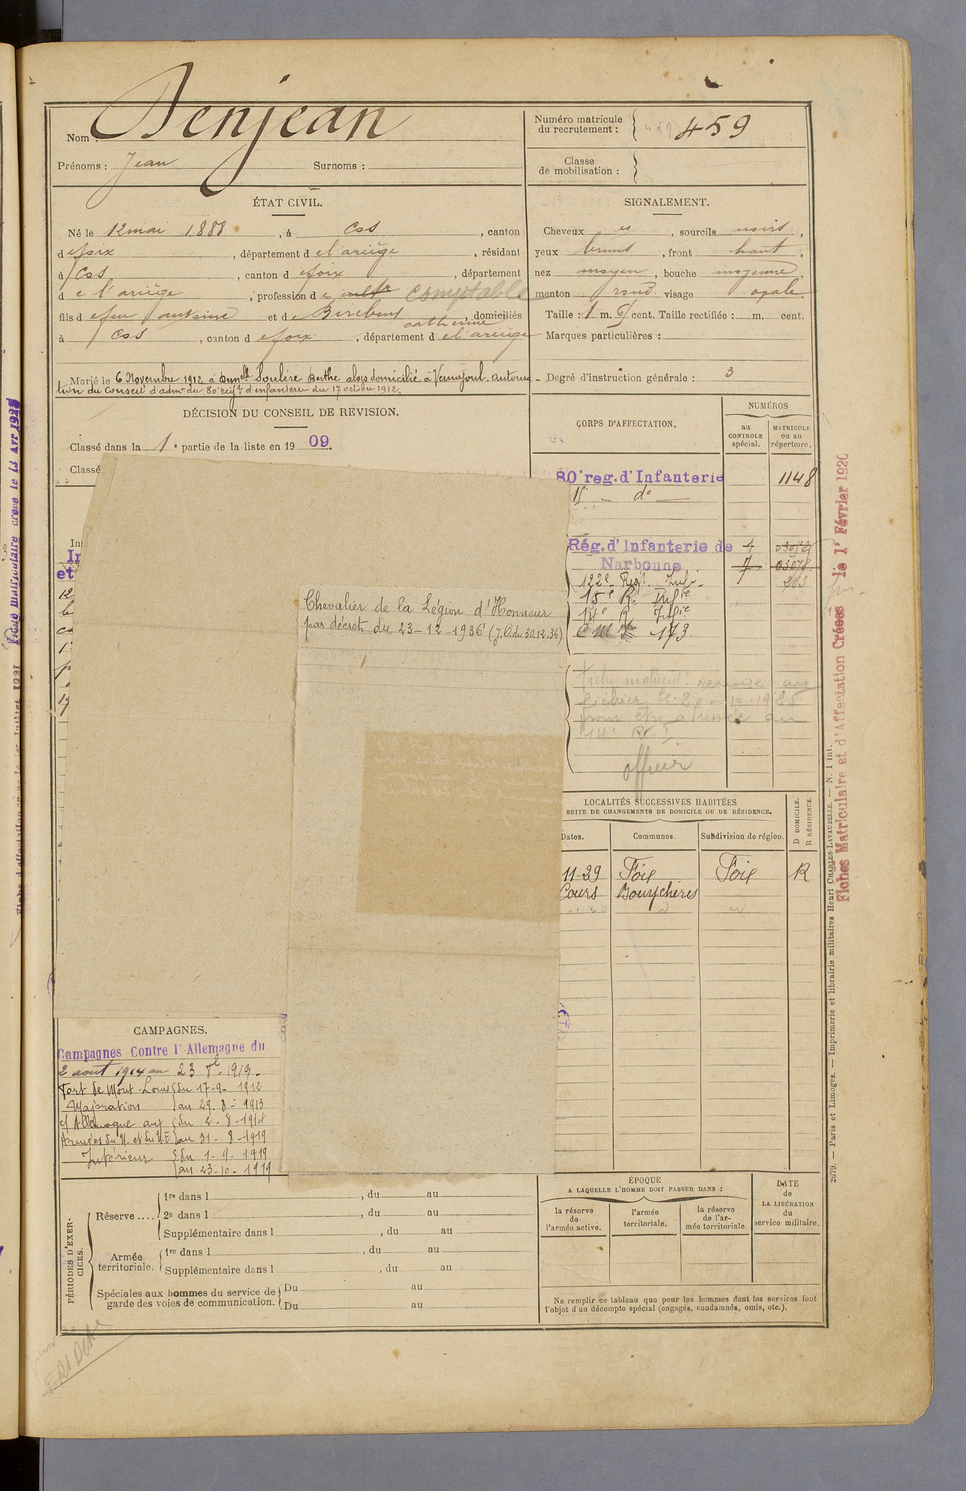 Nom : Denjean
Prénoms : Jean Surnoms :
Numéro matricule du recrutement : 459
Classe de mobilisation :
ÉTAT CIVIL.
Né le 12 mai 1888, à Cos, canton
d e foix, département d e l'ariège, résidant
à Cos, canton d e foix, département
d e l'ariège, profession d e cultr comptable
fils d e feu antoine et d e catherine, domiciliés
à Cos, canton d e foix, département d e l'ariège
Marié le 6 Novembre 1912 à Demlle Soulère Berthe alors domicilié à Vernajoul. autorisa-
tion du Conseil d'admon du 80e régt d'infanterie du 17 octobre 1912.
DÉCISION DU CONSEIL DE RÉVISION.
Classé dans la 1e partie de la liste en 1909.
Classé
SIGNALEMENT.
Cheveux et, sourcils noirs,
yeux bruns, front haut,
nez moyen, bouche moyenne,
menton rond visage ovale
Taille : 1 m. cent. Taille rectifiée : m. cent.
Marques particulières :
Degré d'instruction générale : 3
CORPS D'AFFECTATION.
NUMÉROS
au CONTROLE spécial.
MATRICULE ou au répertoire.
80e reg. d'Infanterie 1148
do
Rég. d'Infanterie de Narbonne
122e Regt Infie 263
15e R. Infie
14e R Infie
Chevalier de la Légion d'Honneur
par décret du 23-12-1936 (J.O. du 30.12.36)
fichier
14e R I
officier
LOCALITÉS SUCCESSIVES HABITÉES
SUITE DE CHANGEMENTS DE DOMICILE OU DE RÉSIDENCE.
Dates. Communes. Subdivision de région. D DOMICILE. R RÉSIDENCE.
11-29 Foix Foix R
Cours Bouychères
CAMPAGNES.
Campagnes Contre l'Allemagne du
2 aout 1914 au 23 8bre 1919.
Fort de Mont-Louis du 17-9-1912
Majoration au 29-8-1913
c/ Allemagne aux du 2-8-1914
Armées du N. et du N.E. au 31-8-1919
Intérieur du 1-9-1919
au 23-10-1919
PÉRIODES D'EXERCICES.
Réserve .... 1re dans l , du au
2e dans l , du au
Supplémentaire dans l , du au
Armée territoriale. 1re dans l , du au
Supplémentaire dans l , du au
Spéciales aux hommes du service de garde des voies de communication. Du au
Du au
ÉPOQUE
A LAQUELLE L'HOMME DOIT PASSER DANS :
la réserve de l'armée active.
l'armée territoriale.
la réserve de l'armée territoriale.
DATE de LA LIBÉRATION du service militaire.
Ne remplir ce tableau que pour les hommes dont les services font
l'objet d'un décompte spécial (engagés, condamnés, omis, etc.).
2679. — Paris et Limoges. — Imprimerie et librairie militaires Henri CHARLES-LAVAUZELLE. — N. 1 int.
Fiches Matriculaire et d'Affectation Créées le 1er Février 1920
Fiche matriculaire créée le 13 Avr 1928